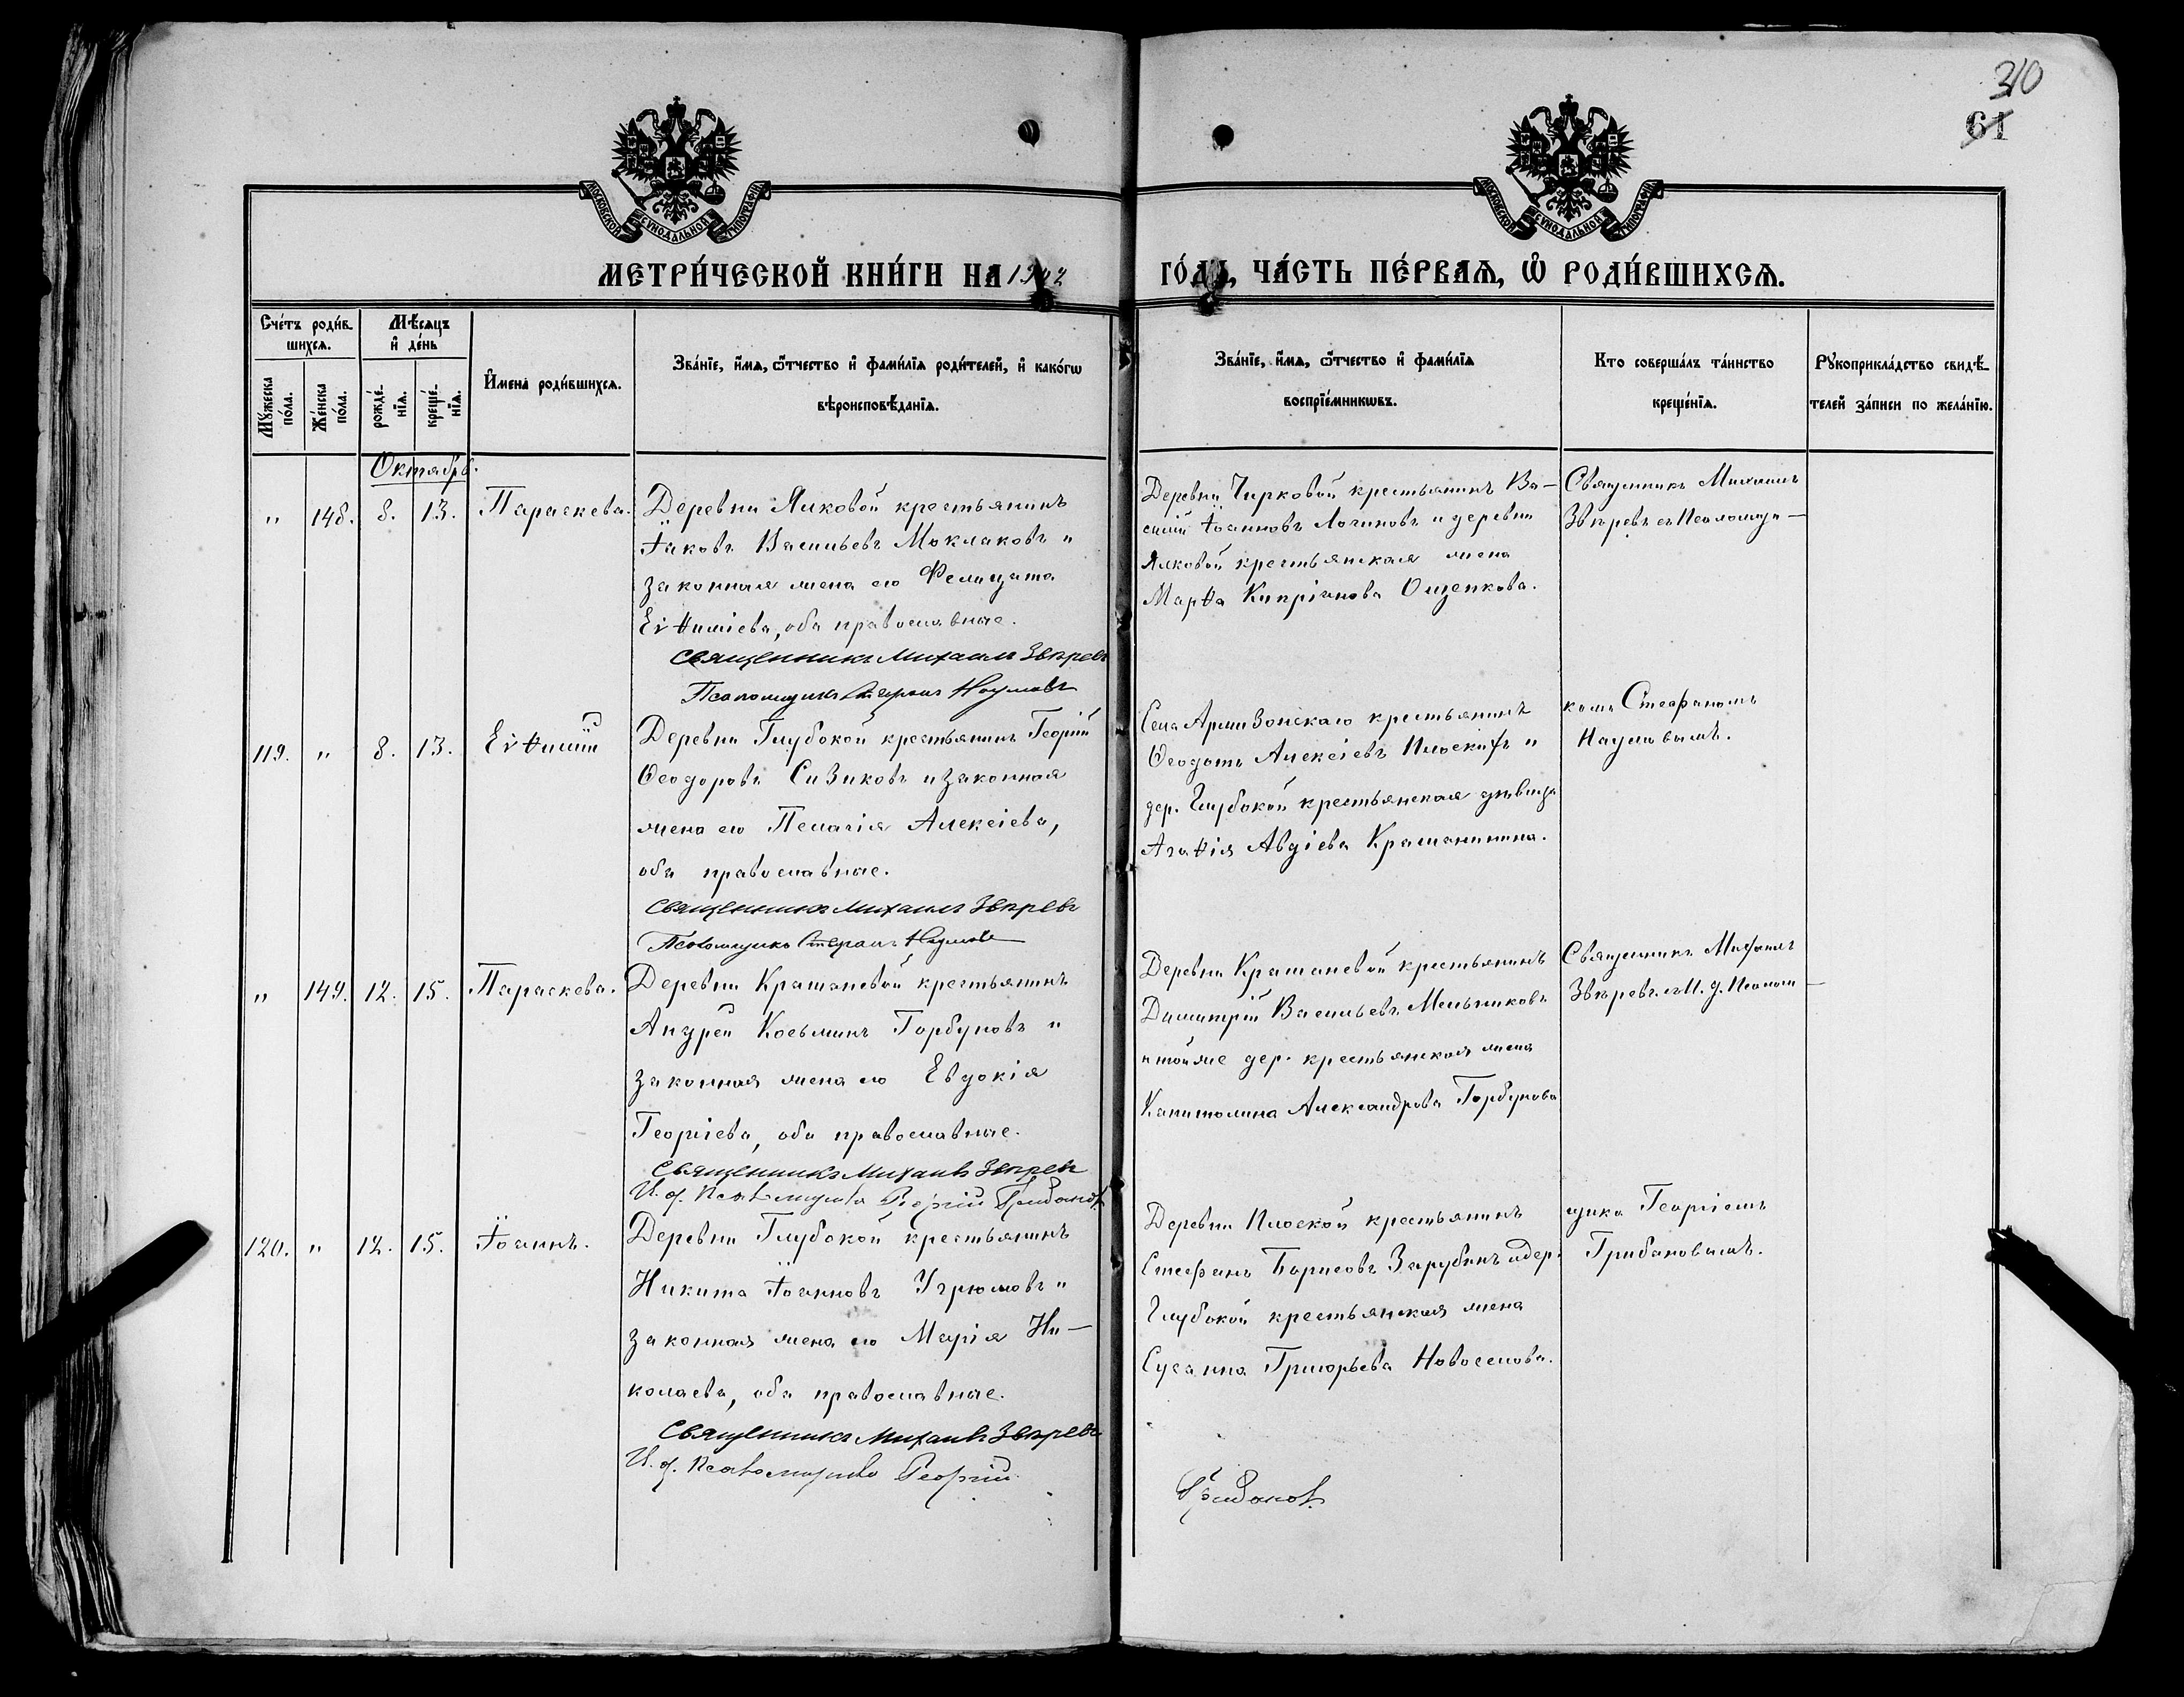 310
61
МОСКОВСКОЙ СѴНОДАЛЬНОЙ ТИПОГРАФІИ
МОСКОВСКОЙ СѴНОДАЛЬНОЙ ТИПОГРАФІИ
МЕТРИ́ЧЕСКОЙ КНИ́ГИ НА 1902
ГО́ДЪ, ЧА́СТЬ ПЕ́РВАѦ, Ѽ РОДИ́ВШИХСѦ.
Счéтъ роди́в-
шихсѧ.
Мѣ́сѧцъ
и҆ де́нь
Мꙋ́жеска
по́ла.
Же́нска
по́ла.
рожде́-
нїѧ.
креще́-
нїѧ.
И҆мена̀ роди́вшихсѧ.
Зва́нїе, и҆́мѧ, ѻ҆́тчество и҆ фами́лїѧ роди́телей, и҆ како́гѡ
вѣроисповѣ́данїѧ.
Зва́нїе, и҆́мѧ, ѻ҆́тчество и҆ фами́лїѧ
воспрїе́мникѡвъ.
Кто̀ соверша́лъ та́инство
креще́нїѧ.
Рꙋкоприкла́дство свидѣ́-
телей за́писи по жела́нїю.
Октябрь.
" 148. 8. 13. Параскева.
Деревни Ялковой крестьянинъ
Іаковъ Васильевъ Моклаковъ и
законная жена его Фелицата
Евѳиміева, оба православные.
Священникъ Михаилъ Звѣревъ
Псаломщикъ Стефанъ Наумовъ
Деревни Чирковой крестьянинъ Ва-
силій Іоанновъ Логиновъ и деревни
Ялковой крестьянская жена
Марѳа Кипріанова Ощепкова.
Священникъ Михаилъ
Звѣревъ съ Псаломщи-
119. " 8. 13. Евѳимій
Деревни Глубокой крестьянинъ Георгій
Ѳеодоровъ Сизиковъ и законная
жена его Пелагія Алексіева,
оба православные.
Священникъ Михаилъ Звѣревъ
Псаломщикъ Стефанъ Наумовъ
Села Армизонскаго крестьянинъ
Ѳеодотъ Алексіевъ Плоскихъ и
дер. Глубокой крестьянская дѣвица
Агаѳія Авдіева Крашанинина.
комъ Стефаномъ
Наумовымъ.
" 149. 12. 15. Параскева.
Деревни Крашаневой крестьянинъ
Андрей Косьминъ Горбуновъ и
законная жена его Евдокія
Георгіева, оба православные.
Священникъ Михаилъ Звѣревъ
И. д. Псаломщика Георгій Грибановъ
Деревни Крашаневой крестьянинъ
Димитрій Васильевъ Мельниковъ
и той же дер. крестьянская жена
Капитолина Александрова Горбунова
Священникъ Михаилъ
Звѣревъ съ И. д. Псалом-
120. " 12. 15. Іоаннъ.
Деревни Глубокой крестьянинъ
Никита Іоанновъ Угрюмовъ и
законная жена его Марія Ни-
колаева, оба православные.
Священникъ Михаилъ Звѣревъ
И. д. Псаломщика Георгій
Деревни Плоской крестьянинъ
Стефанъ Борисовъ Зарубинъ и дер.
Глубокой крестьянская жена
Сусанна Григорьева Новоселова.
щика Георгіемъ
Грибановымъ.
Грибановъ